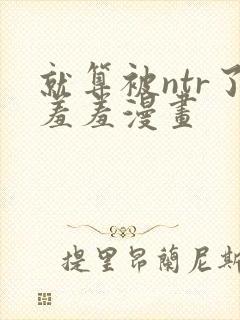 就算被ntr了
羞羞漫畫
提里昂蘭尼斯